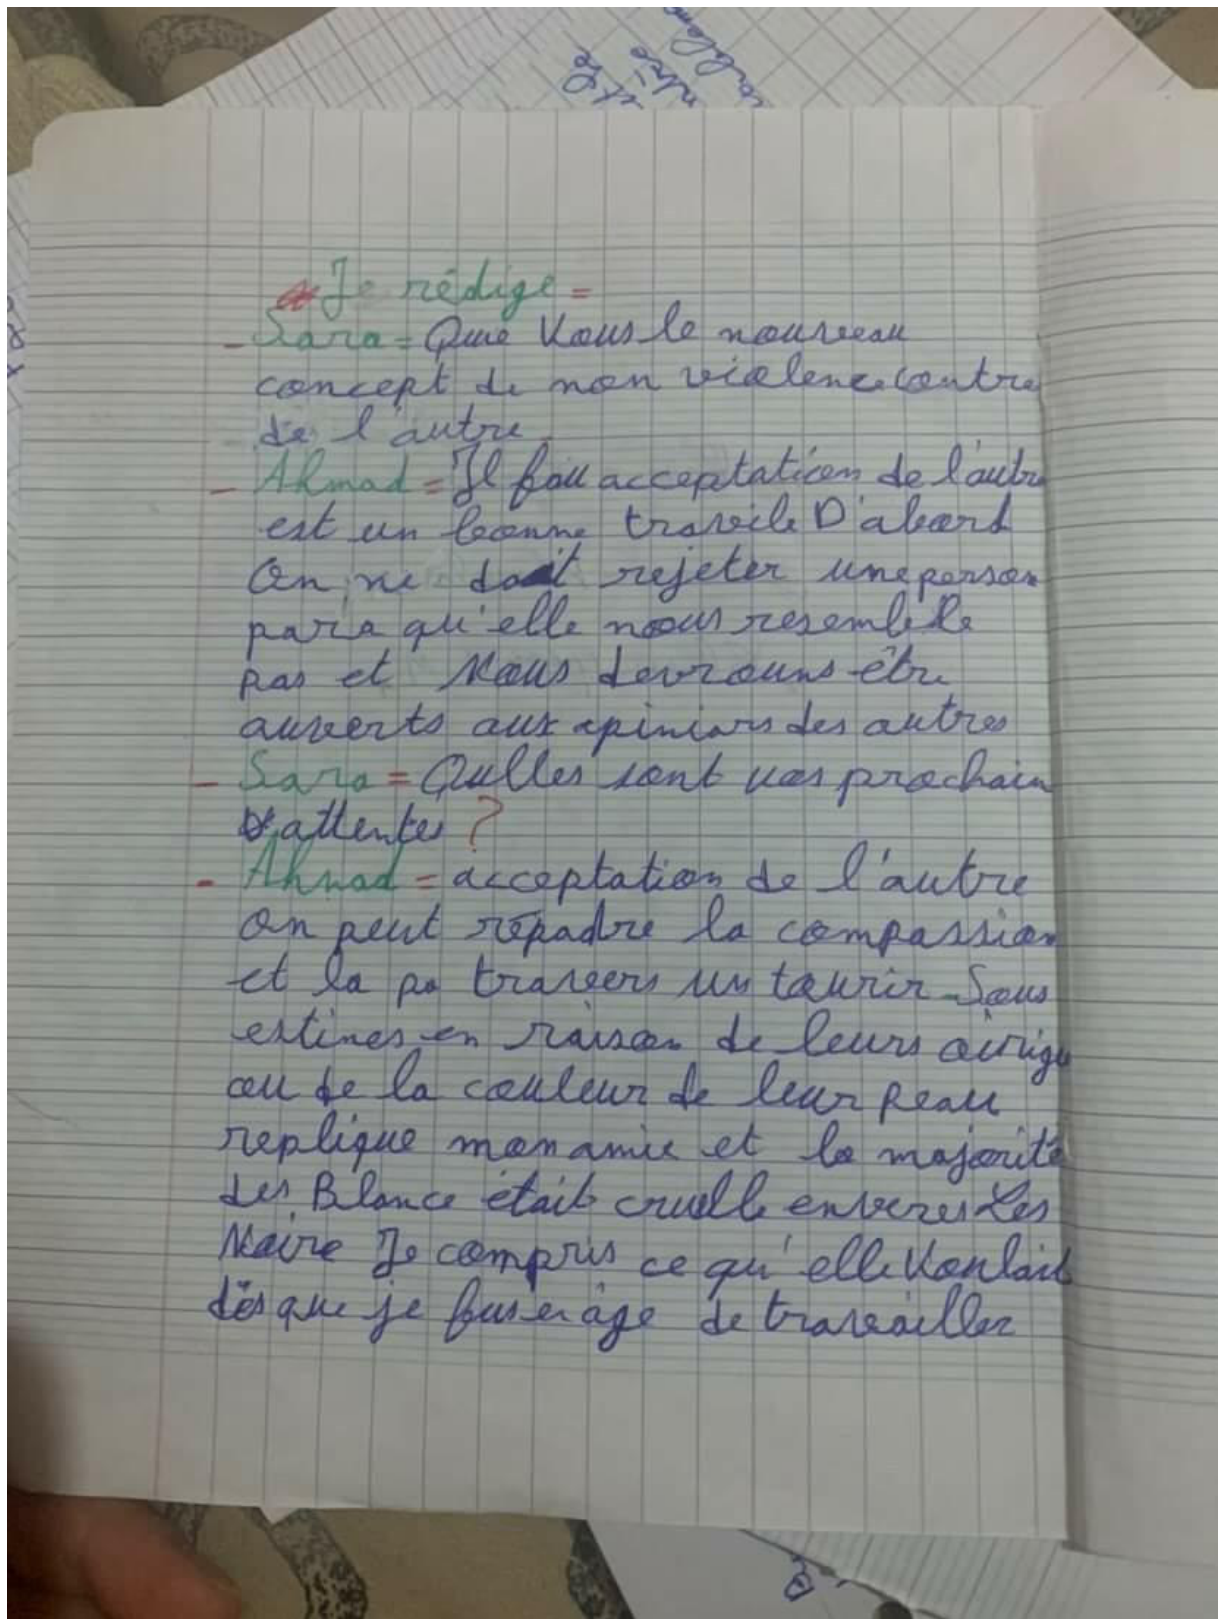 et le
ntré
* Je rédige =
- Sara = Que Vous le nouveau
concept de non violence contre
de l'autre
- Ahmad = Il fau acceptatien de l'autre
est un bonne traveile D'abord
On ne doit rejeter une person
para qu'elle nous resemble
pas et Nous devrouns être
auverts aux opinions des autres
- Sara = Qulles sont vos prochain
attentes ?
- Ahmad = acceptation de l'autre
on peut répadre la compassion
et la pa travers un taurir Sous
estines en raison de leurs
ou de la couleur de leur peau
replique mon amie et la majorité
des Blance était cruelle enveres Les
Noire Je compris ce qu'elle Voulait
dès que je fus en âge de travailler